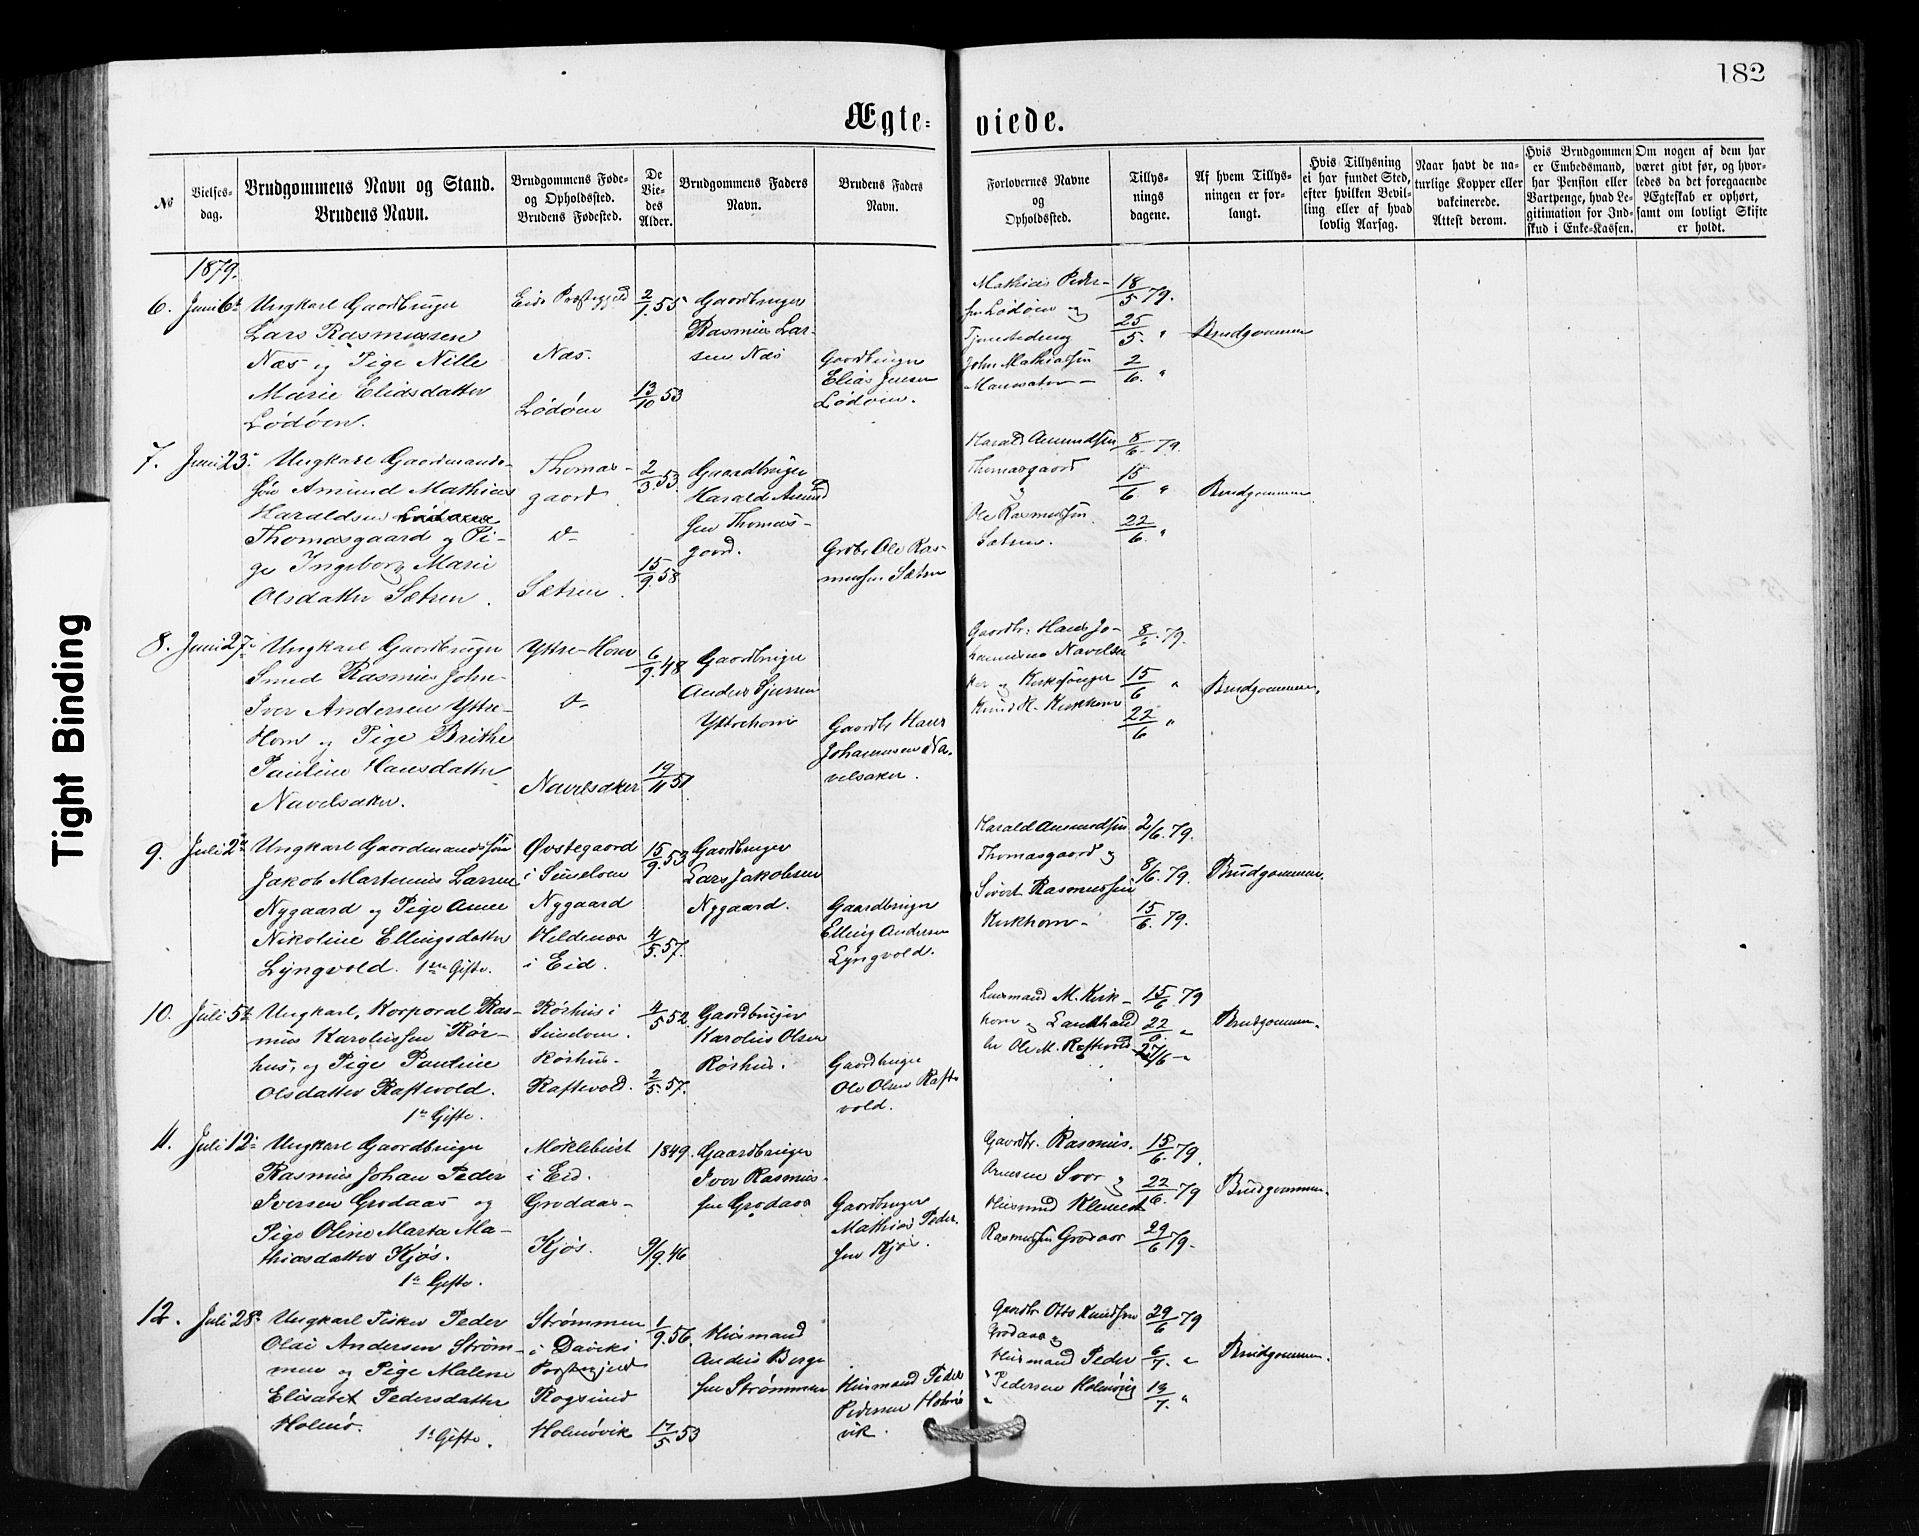 182
Ægte-
viede.
No
Vielses-
dag.
Brudgommens Navn og Stand.
Brudens Navn.
Brudgommens Føde-
og Opholdssted.
Brudens Fødested.
De
Vie-
des
Alder.
Brudgommens Faders
Navn.
Brudens Faders
Navn.
Forlovernes Navne
og
Opholdssted.
Tillys-
nings
dagene.
Af hvem Tillys-
ningen er for-
langt.
Hvis Tillysning
ei har fundet Sted,
efter hvilken Bevil-
ling eller af hvad
lovlig Aarsag.
Naar havt de na-
turlige Kopper eller
vakcinerede.
Attest derom.
Hvis Brudgommen
er Embedsmand,
har Pension eller
Vartpenge, hvad Le-
gitimation for Ind-
skud i Enke-Kassen.
Om nogen af dem har
været givt før, og hvor-
ledes da det foregaaende
Ægteskab er ophørt,
samt om lovligt Skifte
er holdt.
1879.
6. Juni 6te
Ungkarl Gaardbruger
Lars Rasmussen
Næs og Pige Nille
Marie Eliasdatter
Lødøen.
Eids Præstegjeld
Næs.
Lødøen
2/1. 55
13/10 53
Gaardbruger
Rasmus Lar-
sen Næs
Gaardbruger
Elias Jensen
Lødøen.
Mathias Peder-
sen Lødøen og
John Mathiassen
18/5 79.
25/5. "
2/6. "
Brudgommen
7. Juni 23.
Ungkarl Gaardmands-
søn Amund Mathias
Haraldsen
Thomasgaard og Pi-
ge Ingeborg Marie
Olsdatter Sætren.
Thomas-
gaard
Sætren.
2/3. 53.
15/9. 58
Gaardbruger
Harald Amund
sen Thomas-
gaard.
Grdbr Ole Ras-
mussen Sætren
Harald Amundsen
Thomasgaard
Ole Rasmussen
Sætren.
8/6. 79.
15/6 "
22/6. "
Brudgommen
8. Juni 27.
Ungkarl Gaardbruger
Smed Rasmus John-
Iver Andersen Yttre-
Horn og Pige Brithe
Pauline Hansdatter
Navelsaker.
Yttre-Horn
Navelsaker
6/9. 48
19/11 51
Gaardbruger
Anders Sjursen
Yttrehorn
Gaardbr Hans
Johannesen Na-
velsaker.
Gaardbr. Hans Jo-
hannesen Navelsa-
ker og Kirkesanger
Knud K. Kirkhorn
8/6. 79.
15/6 "
22/6 "
Brudgommen.
9. Juli 2den
Ungkarl Gaardmandssøn
Jakob Martinus Larsen
Nygaard og Pige Anne
Nikoline Ellingsdatter
Lyngvold. 1ste Gifte.
Øvstegaard
i Indselven
Nygaard
Heldenæs
i Eid.
15/9. 53
4/5. 57.
Gaardbruger
Lars Jakobsen
Nygaard.
Gaardbruger
Elling Andersen
Lyngvold.
Harald Amundsen
Thomasgaard og
Sivert Rasmussen
Kirkhorn
2/6. 79.
8/6. 79.
15/6. 79.
Brudgommen.
10. Juli 5te
Ungkarl, Korporal Ras-
mus Karolussen Rør-
hus, og Pige Pauline
Olsdatter Raftevold.
1ste Gifte.
Rørhus i
Indselven
Rørhus.
Raftevold.
4/5 52.
2/5. 57.
Gaardbruger
Karolus Olsen
Rørhus.
Gaardbruger
Ole Olsen Rafte
vold.
Lensmand M. Kirk-
horn og Landhand
ler Ole M. Raftevold
15/6. 79
22/6. "
27/6 - "
Brudgommen.
11. Juli 12te
Ungkarl Gaardbruger
Rasmus Johan Peder
Iversen Grodaas og
Pige Oline Marta Ma-
thiasdatter Kjøs.
1ste Gifte.
Møklebust
i Eid.
Grodaas-
Kjøs.
1849.
9/9. 46
Gaardbruger
Iver Rasmus-
sen Grodaas
Gaardbruger
Mathias Peder-
sen Kjøs.
Gaardbr. Rasmus
Arnesen Svor og
Husmand Klement
Rasmussen Grodaas
15/6. 79.
22/6. 79
29/6 79.
Brudgommen.
12. Juli 28de
Ungkarl Fisker Peder
Olai Andersen Strøm-
men og Pige Malene
Elisabet Pedersdatter
Holmø.
1ste Gifte.
Strømmen
i Daviks
Præstegjeld
Rogsund
Holmøvik
1/9. 56.
17/5 53
Husmand
Anders Berge
sen Strømmen
Husmand Peder
Pedersen Holmø
vik.
Gaardbr Otto Knudsen
Grodaas og
Husmand Peder
Pedersen Holmøvig
29/6 79
6/7. "
13/7. "
Brudgommen.
Tight Binding